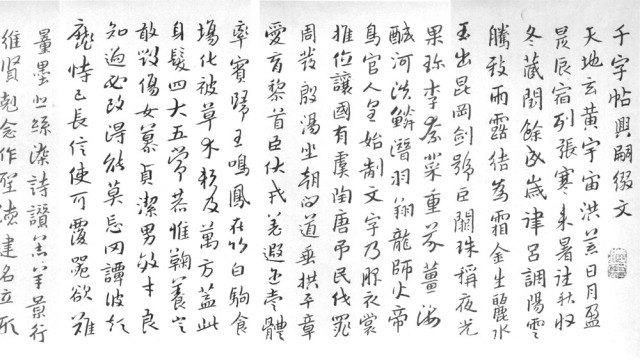 千字帖興嗣綴文
天地玄黃宇宙洪荒日月盈
昃辰宿列張寒來暑往秋收
冬藏閏餘成歲律呂調陽雲
騰致雨露結為霜金生麗水
玉出崑岡劍號巨闕珠稱夜光
果珍李柰菜重芥薑海
鹹河淡鱗潛羽翔龍師火帝
鳥官人皇始制文字乃服衣裳
推位讓國有虞陶唐弔民伐罪
周發殷湯坐朝問道垂拱平章
愛育黎首臣伏戎羌遐邇壹體
率賓歸王鳴鳳在竹白駒食
場化被草木賴及萬方蓋此
身髮四大五常恭惟鞠養豈
敢毀傷女慕貞潔男效才良
知過必改得能莫忘罔談彼短
靡恃己長信使可覆器欲難
量墨悲絲染詩讚羔羊景行
維賢剋念作聖德建名立形